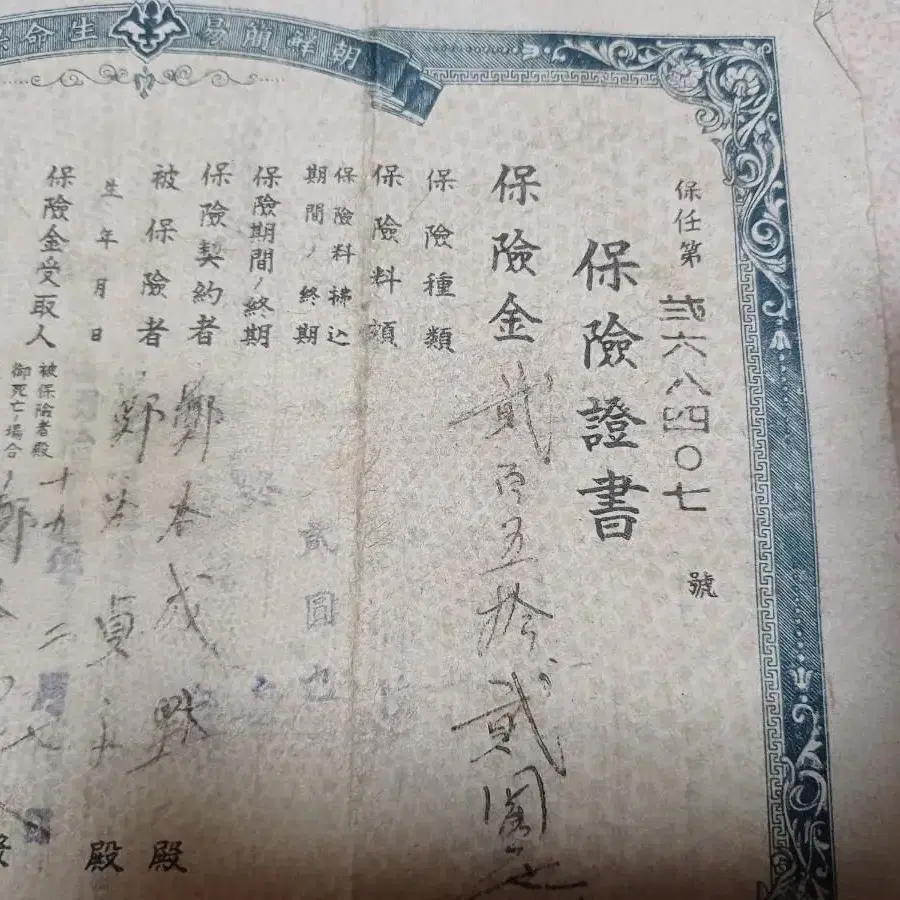 朝鮮簡易生命保
保任第弐六八四〇七號
保險證書
保險金 貳百五拾貳圓
保險種類
保險料額 貳圓也
保險料拂込期間ノ終期
保險期間ノ終期
保險契約者 鄭 成 殿
被保險者 鄭 貞 殿
生年月日 十九年二
保險金受取人 被保險者殿御死亡ノ場合 鄭 殿